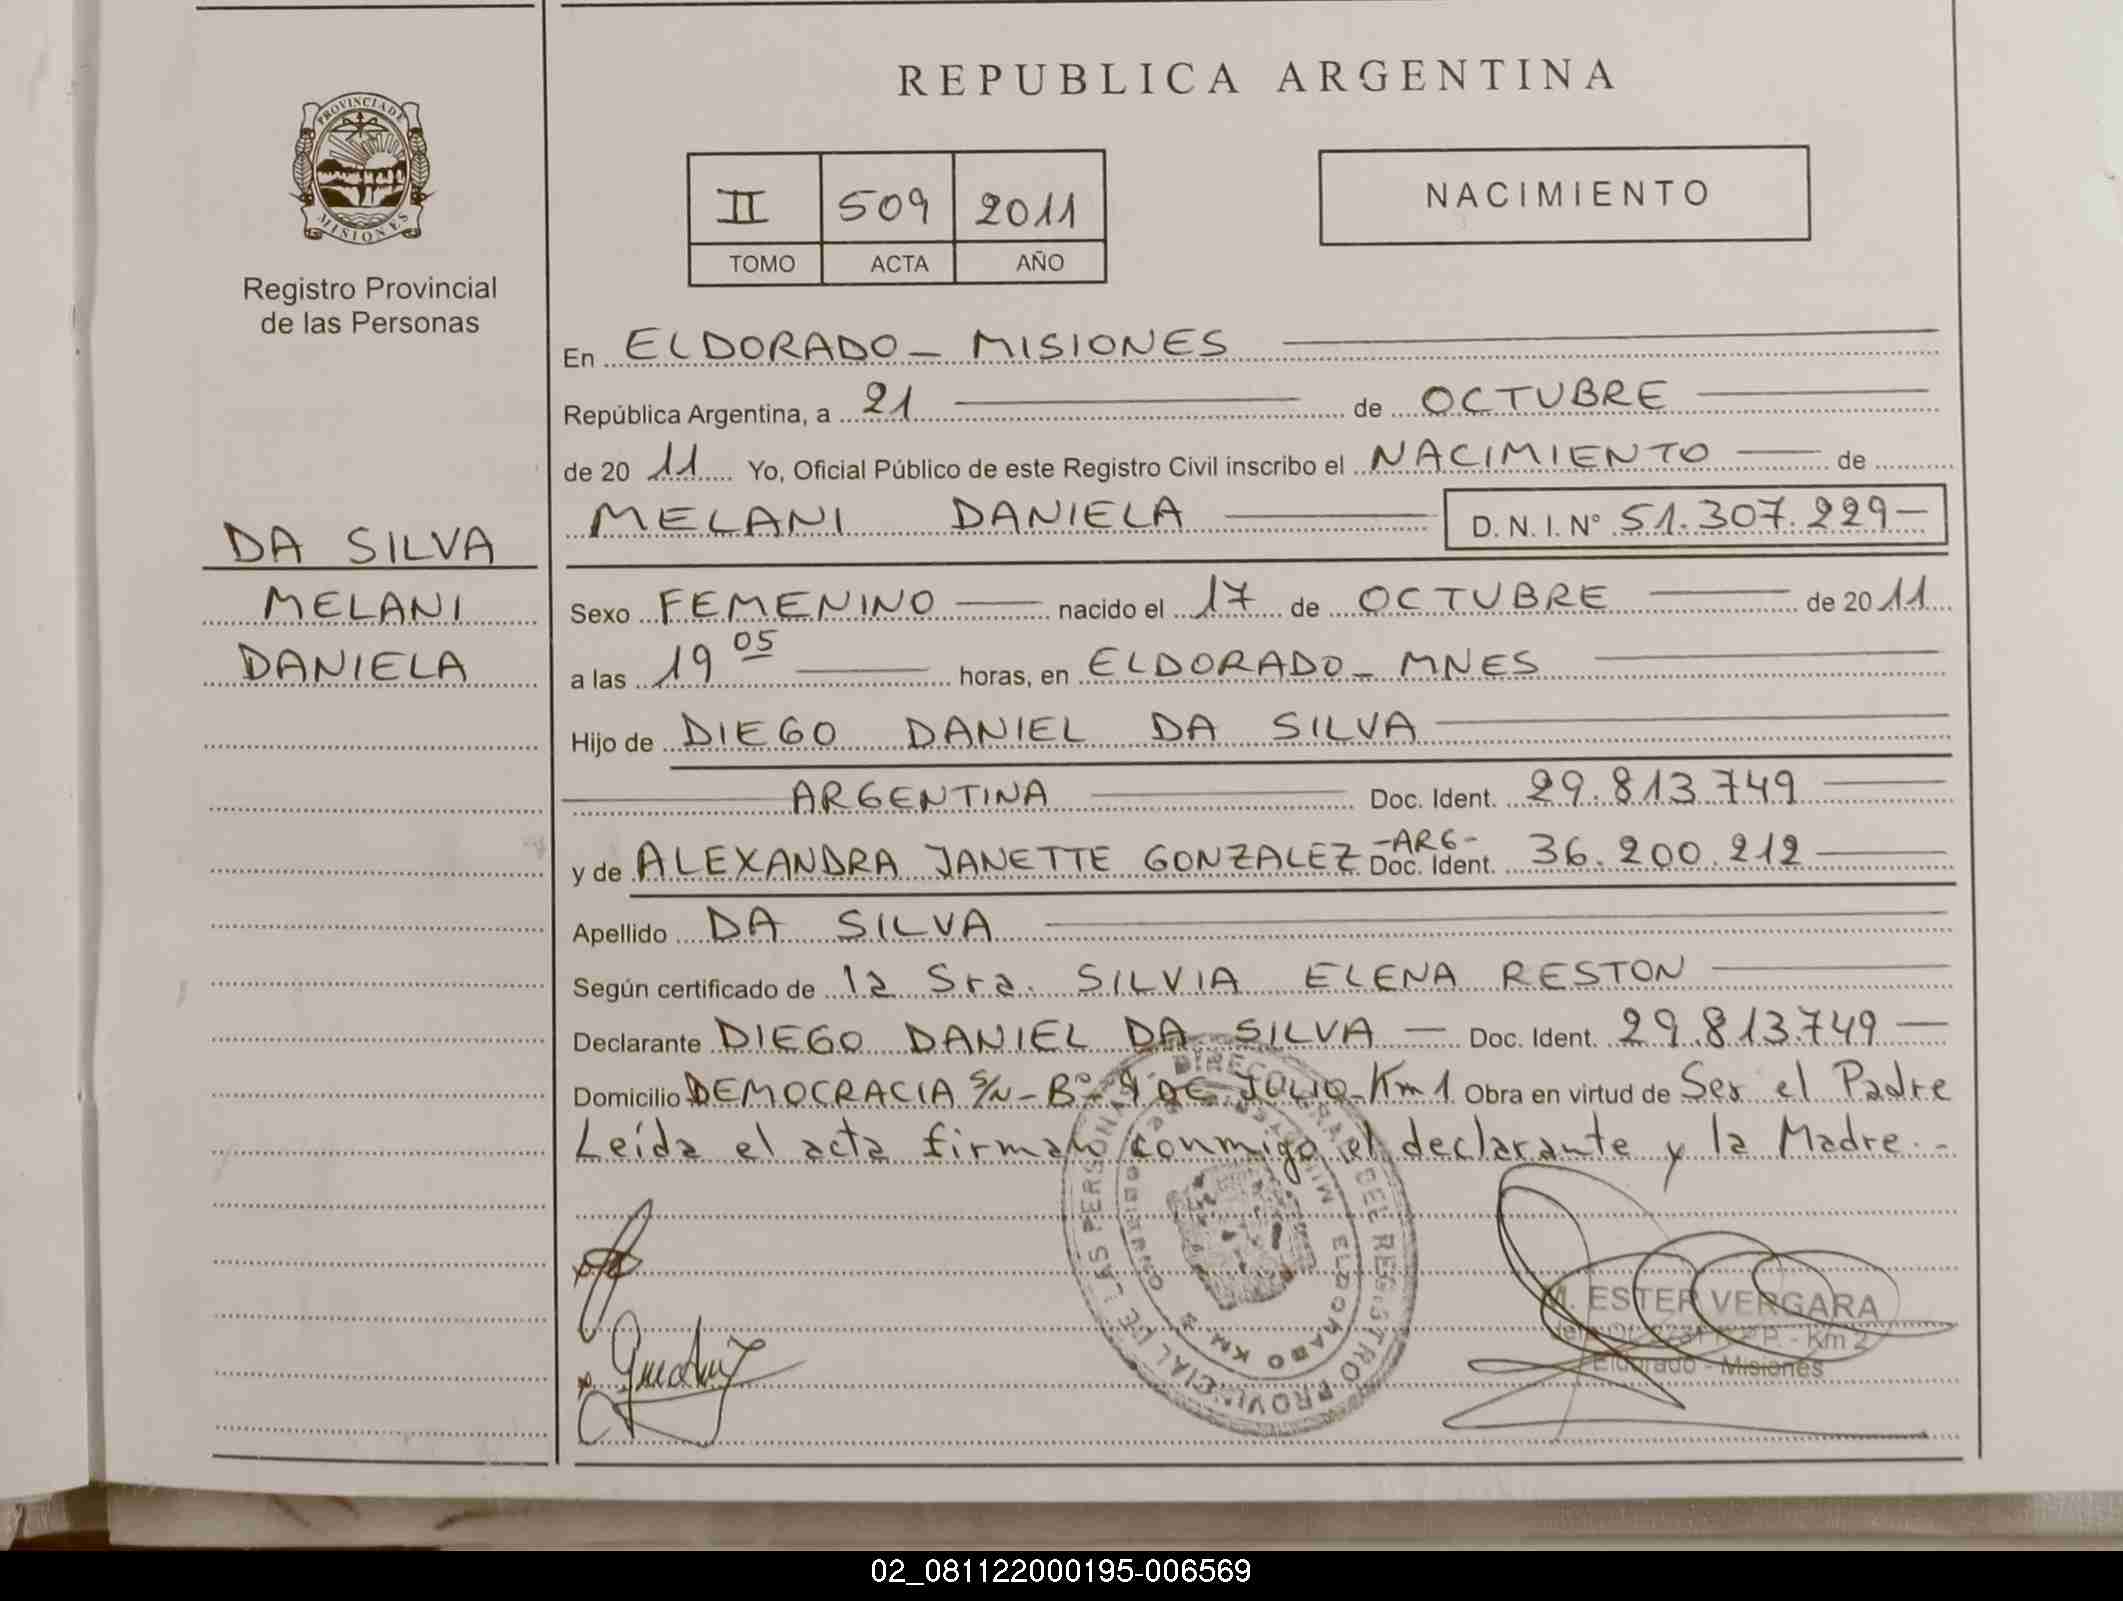 REPUBLICA ARGENTINA
PROVINCIA DE
MISIONES
Registro Provincial
de las Personas
II 509 2011
TOMO ACTA AÑO
NACIMIENTO
En ELDORADO - MISIONES
República Argentina, a 21 de OCTUBRE
de 20 11 Yo, Oficial Público de este Registro Civil inscribo el NACIMIENTO de
MELANI DANIELA D. N. I. N° 51.307.229-
DA SILVA
MELANI
DANIELA
Sexo FEMENINO nacido el 17 de OCTUBRE de 20 11
a las 19 05 horas, en ELDORADO - MNES
Hijo de DIEGO DANIEL DA SILVA
ARGENTINA Doc. Ident. 29.813.749
y de ALEXANDRA JANETTE GONZALEZ -ARG- Doc. Ident. 36.200.212
Apellido DA SILVA
Según certificado de la Sra. SILVIA ELENA RESTON
Declarante DIEGO DANIEL DA SILVA - Doc. Ident. 29.813.749
Domicilio DEMOCRACIA S/N - B° 9 DE JULIO - Km 1 Obra en virtud de Ser el Padre
Leída el acta firman conmigo el declarante y la Madre.-
DEL REGISTRO PROVINCIAL DE LAS PERSONAS
ELDORADO KM 2
M. ESTER VERGARA
Km 2
Eldorado - Misiones
02_081122000195-006569